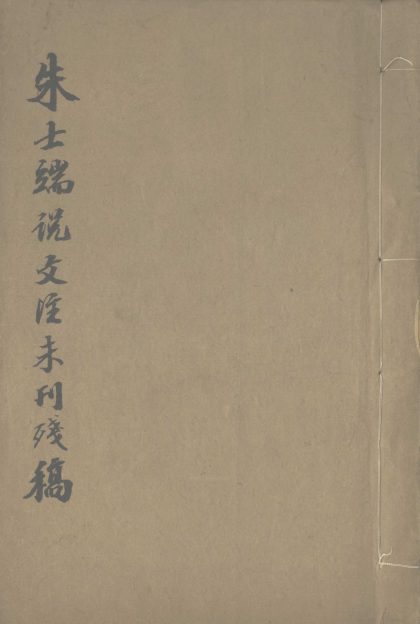 朱士端説文注未刊殘稿